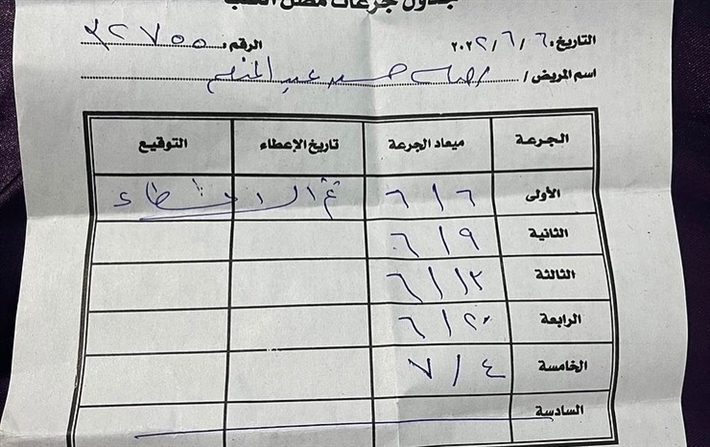 جدول جرعات مصل الكلب
التاريخ: ٦/٦/٢٠٢٢ الرقم: ٣٢٧٥٥
اسم المريض / حسن عبد المنعم
الجرعة ميعاد الجرعة تاريخ الإعطاء التوقيع
الأولى ٦/٦ تم الاعطاء
الثانية ٦/٩
الثالثة ٦/١٣
الرابعة ٦/٢٠
الخامسة ٧/٤
السادسة